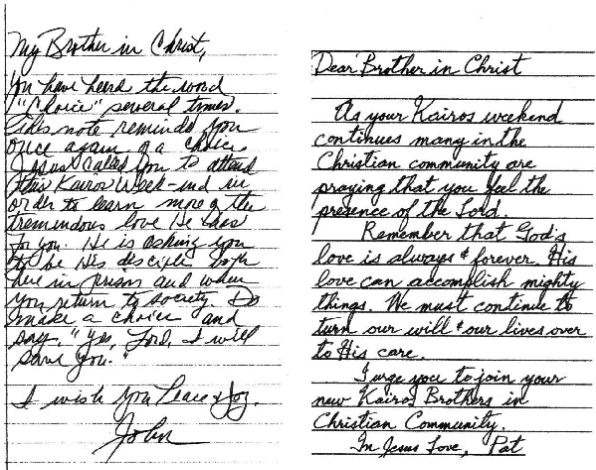 My Brother in Christ,
You have heard the word
"Choice" several times.
This note reminds you
once again of a choice.
Jesus called you to attend
this Kairos Week-end in
order to learn more of the
tremendous love He has
for you. He is asking you
to be His disciple both
here in prison and when
you return to society. Do
make a choice and
say, "Yes, Lord, I will
serve You."
I wish you Peace & Joy.
John
Dear Brother in Christ
As your Kairos weekend
continues many in the
Christian community are
praying that you feel the
presence of the Lord.
Remember that God's
love is always & forever. His
love can accomplish mighty
things. We must continue to
turn our will & our lives over
to His care.
I urge you to join your
new Kairos Brothers in
Christian Community.
In Jesus Love, Pat